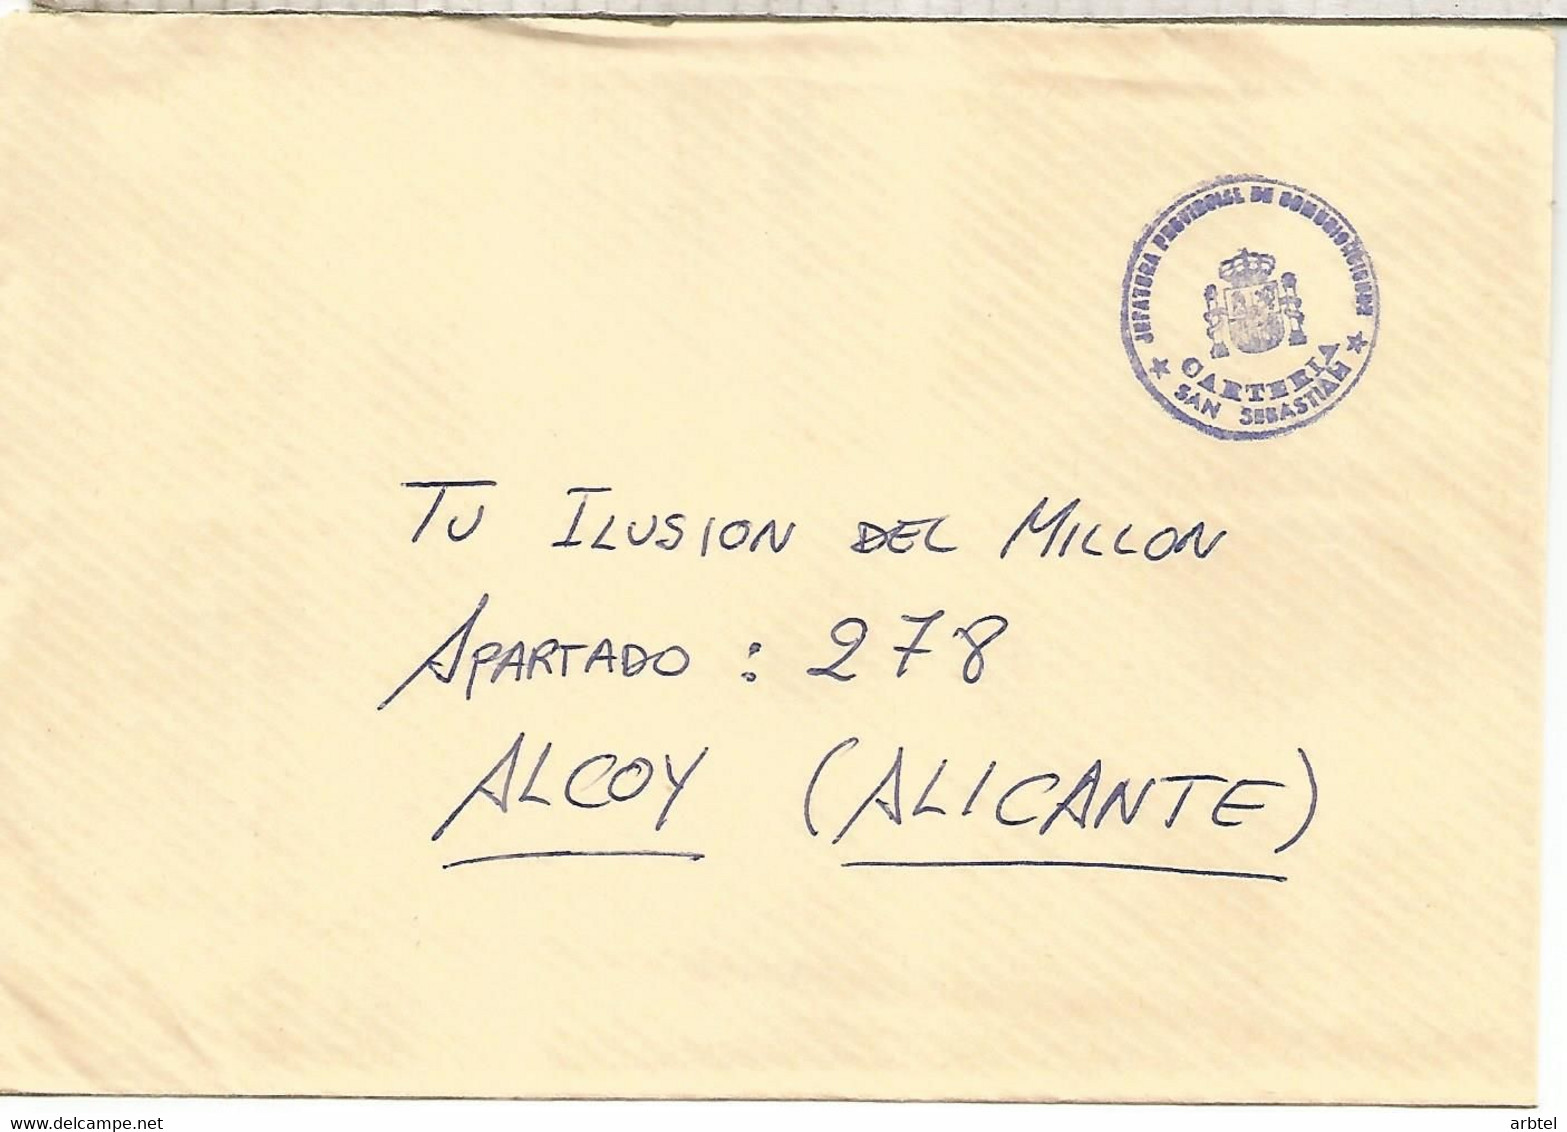 JEFATURA PROVINCIAL DE COMUNICACIONES
CARTERIA
★ SAN SEBASTIAN ★
TU ILUSION DEL MILLON
APARTADO : 278
ALCOY (ALICANTE)
www.delcampe.net
arbtel